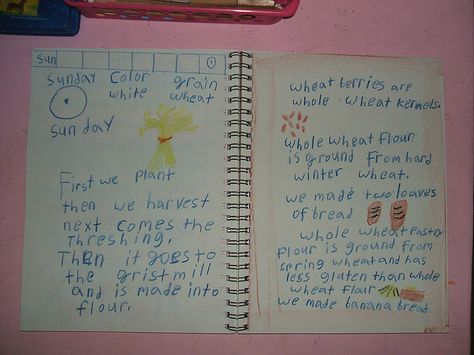 Sun
Sunday color grain
white wheat
Sunday
First we plant
then we harvest
next comes the
Threshing.
Then it goes to
the gristmill
and is made into
flour.
wheat berries are
whole wheat kernels.
whole wheat flour
is ground from hard
winter wheat.
we made two loaves
of bread
whole wheat Pastry
flour is ground from
spring wheat and has
less gluten than whole
wheat flour
we made banana bread